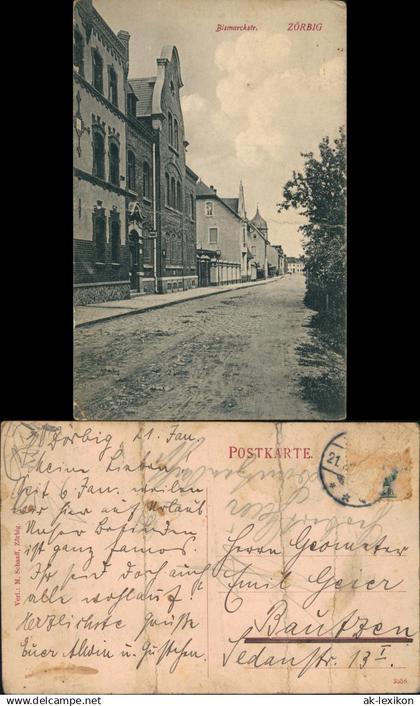 Bismarckstr. ZÖRBIG
Zörbig, 21. Jan.
Meine Lieben!
Seit 6. Jan. weilen
wir hier auf Urlaub
Unser Befinden
ist ganz famos
Ihr seid doch auch
alle wohlauf?
Herzlichste Grüße
Euer Alwin u.
Verl.: M. Schaaff, Zörbig.
POSTKARTE.
21.
Herrn Geometer
Emil Geier
Bautzen
Sedanstr. 13 I
ak-lexikon
www.ansichtskarten-lexikon.de